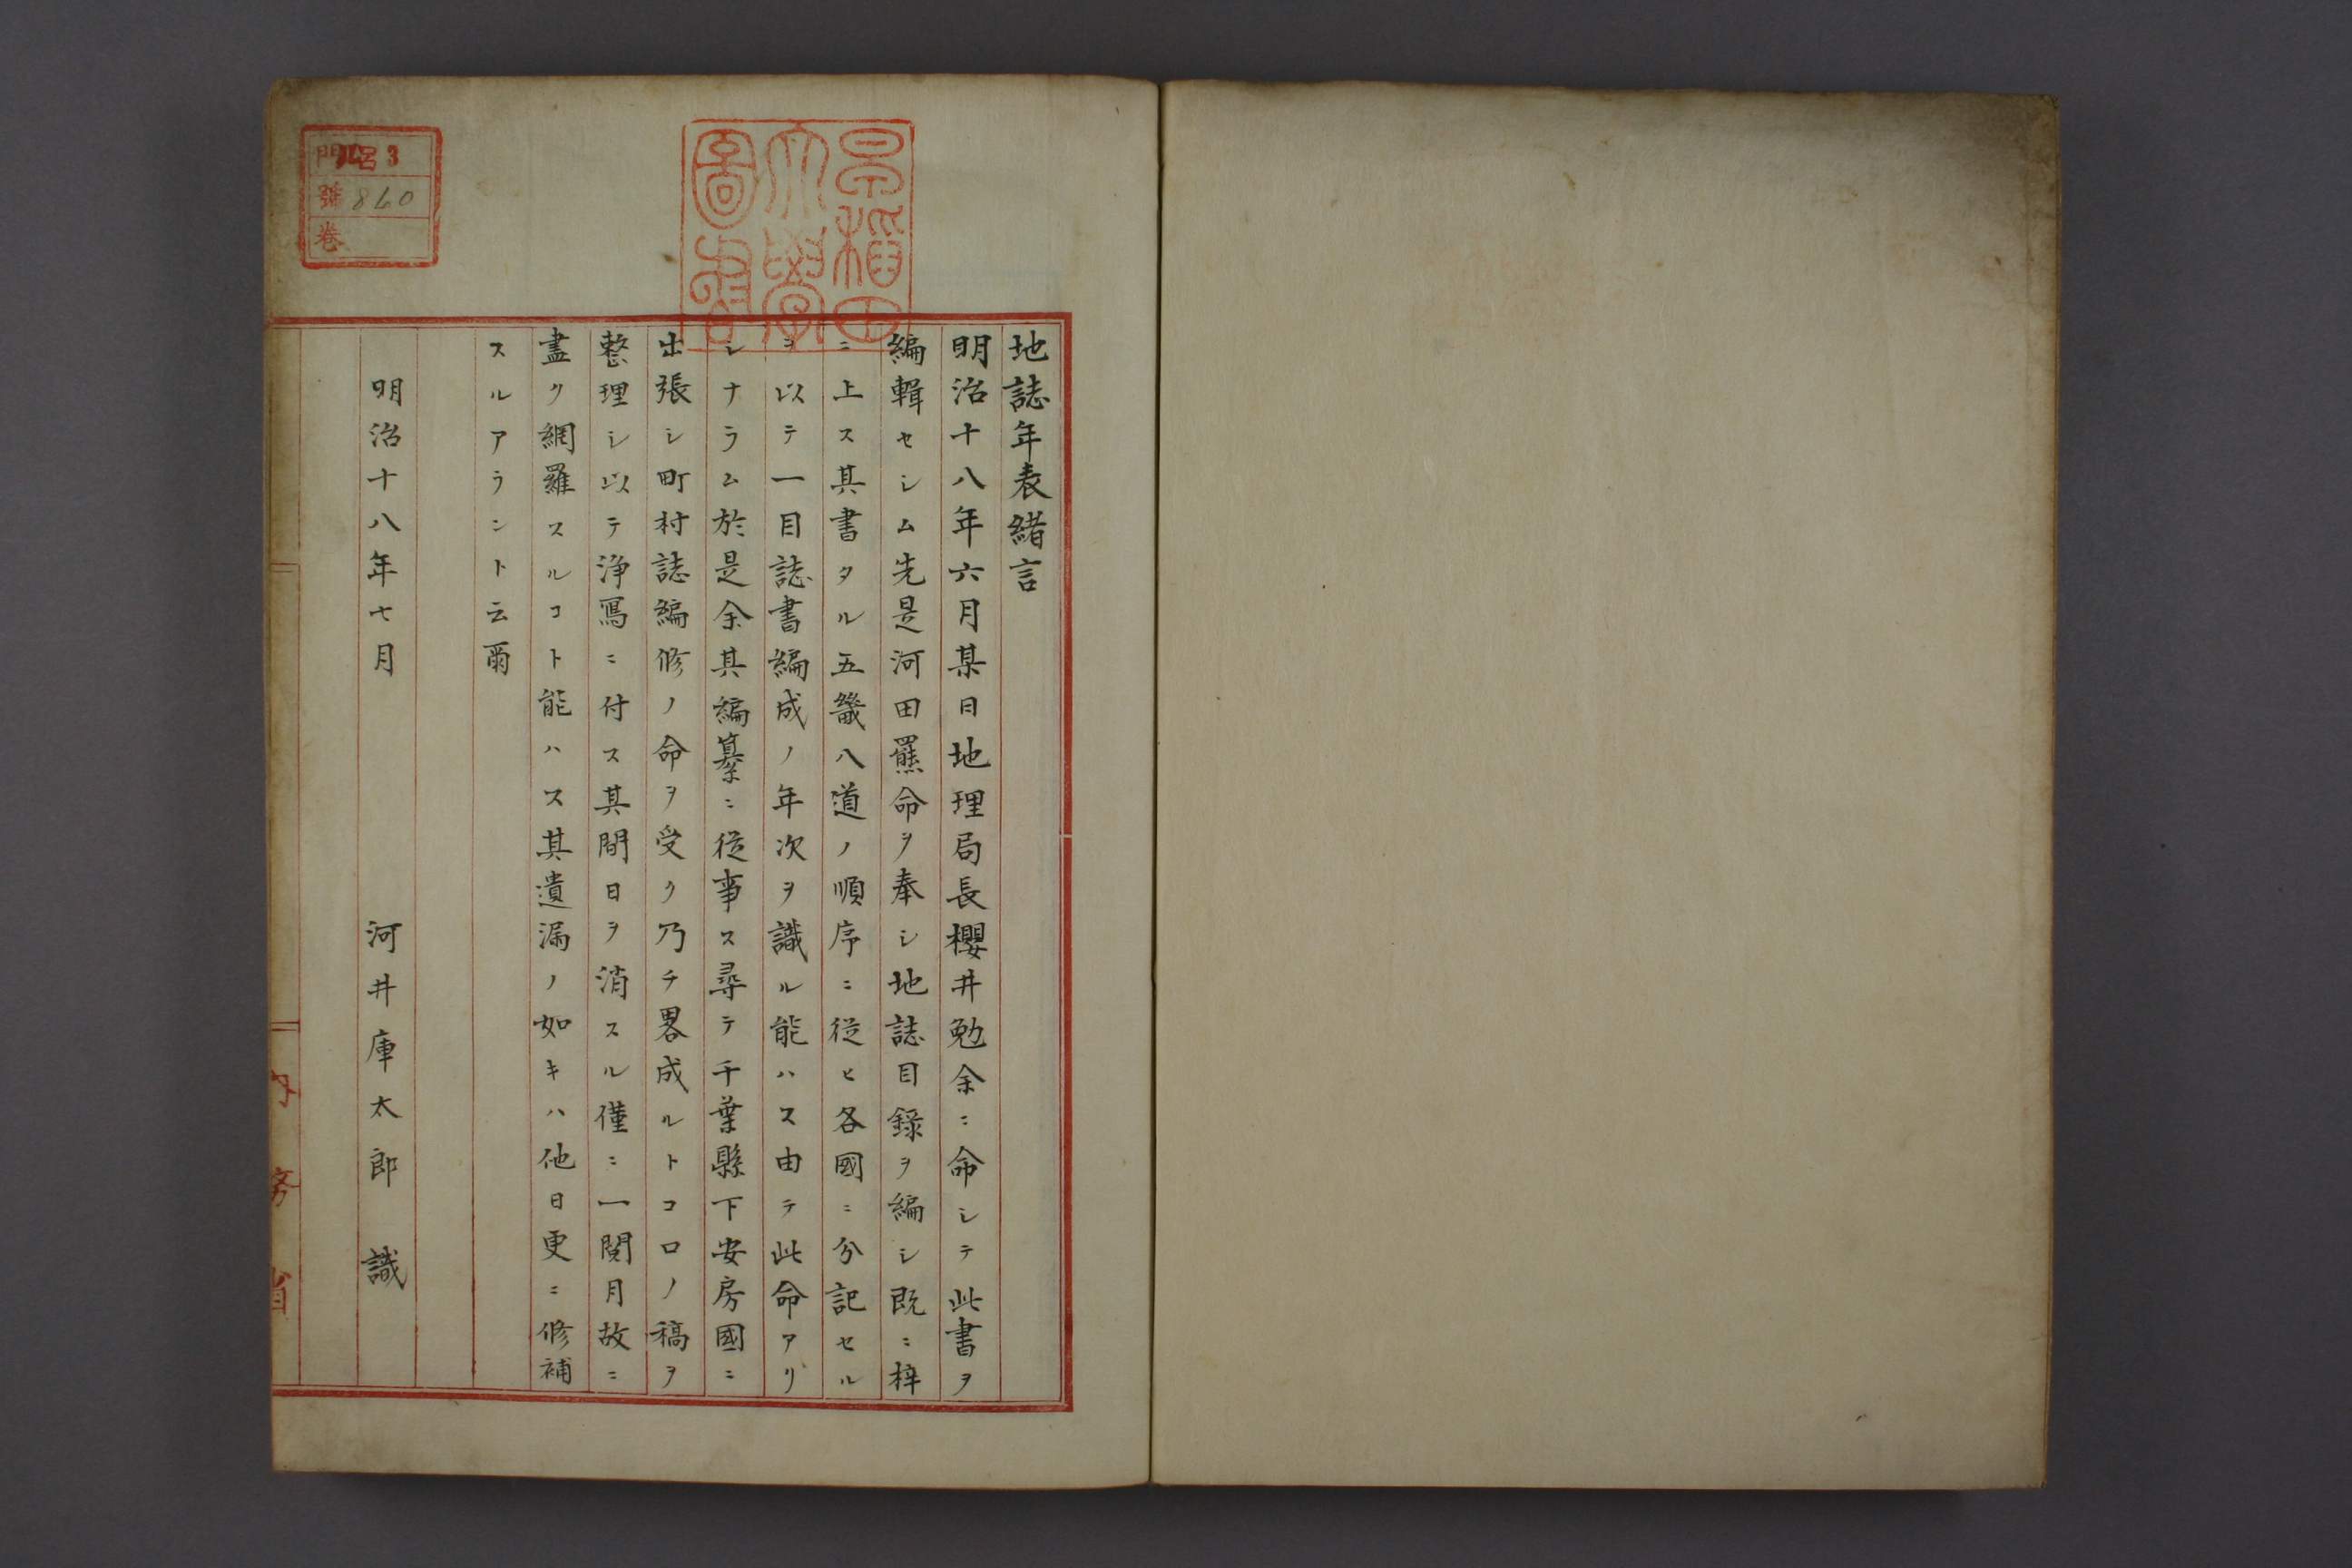 地誌年表緒言
明治十八年六月某日地理局長櫻井勉余ニ命シテ此書ヲ
編輯セシム先是河田羆命ヲ奉シ地誌目錄ヲ編シ既ニ梓
ニ上ス其書タル五畿八道ノ順序ニ從ヒ各國ニ分記セル
ヲ以テ一目誌書編成ノ年次ヲ識ル能ハス由テ此命アリ
シナラム於是余其編纂ニ從事ス尋テ千葉縣下安房國ニ
出張シ町村誌編修ノ命ヲ受ク乃チ畧成ルトコロノ稿ヲ
整理シ以テ淨寫ニ付ス其間日ヲ消スル僅ニ一閱月故ニ
盡ク網羅スルコト能ハス其遺漏ノ如キハ他日更ニ修補
スルアラント云爾
明治十八年七月　河井庫太郎　識
內務省
早稲田
大學
圖書
門 ル 3
號 860
卷